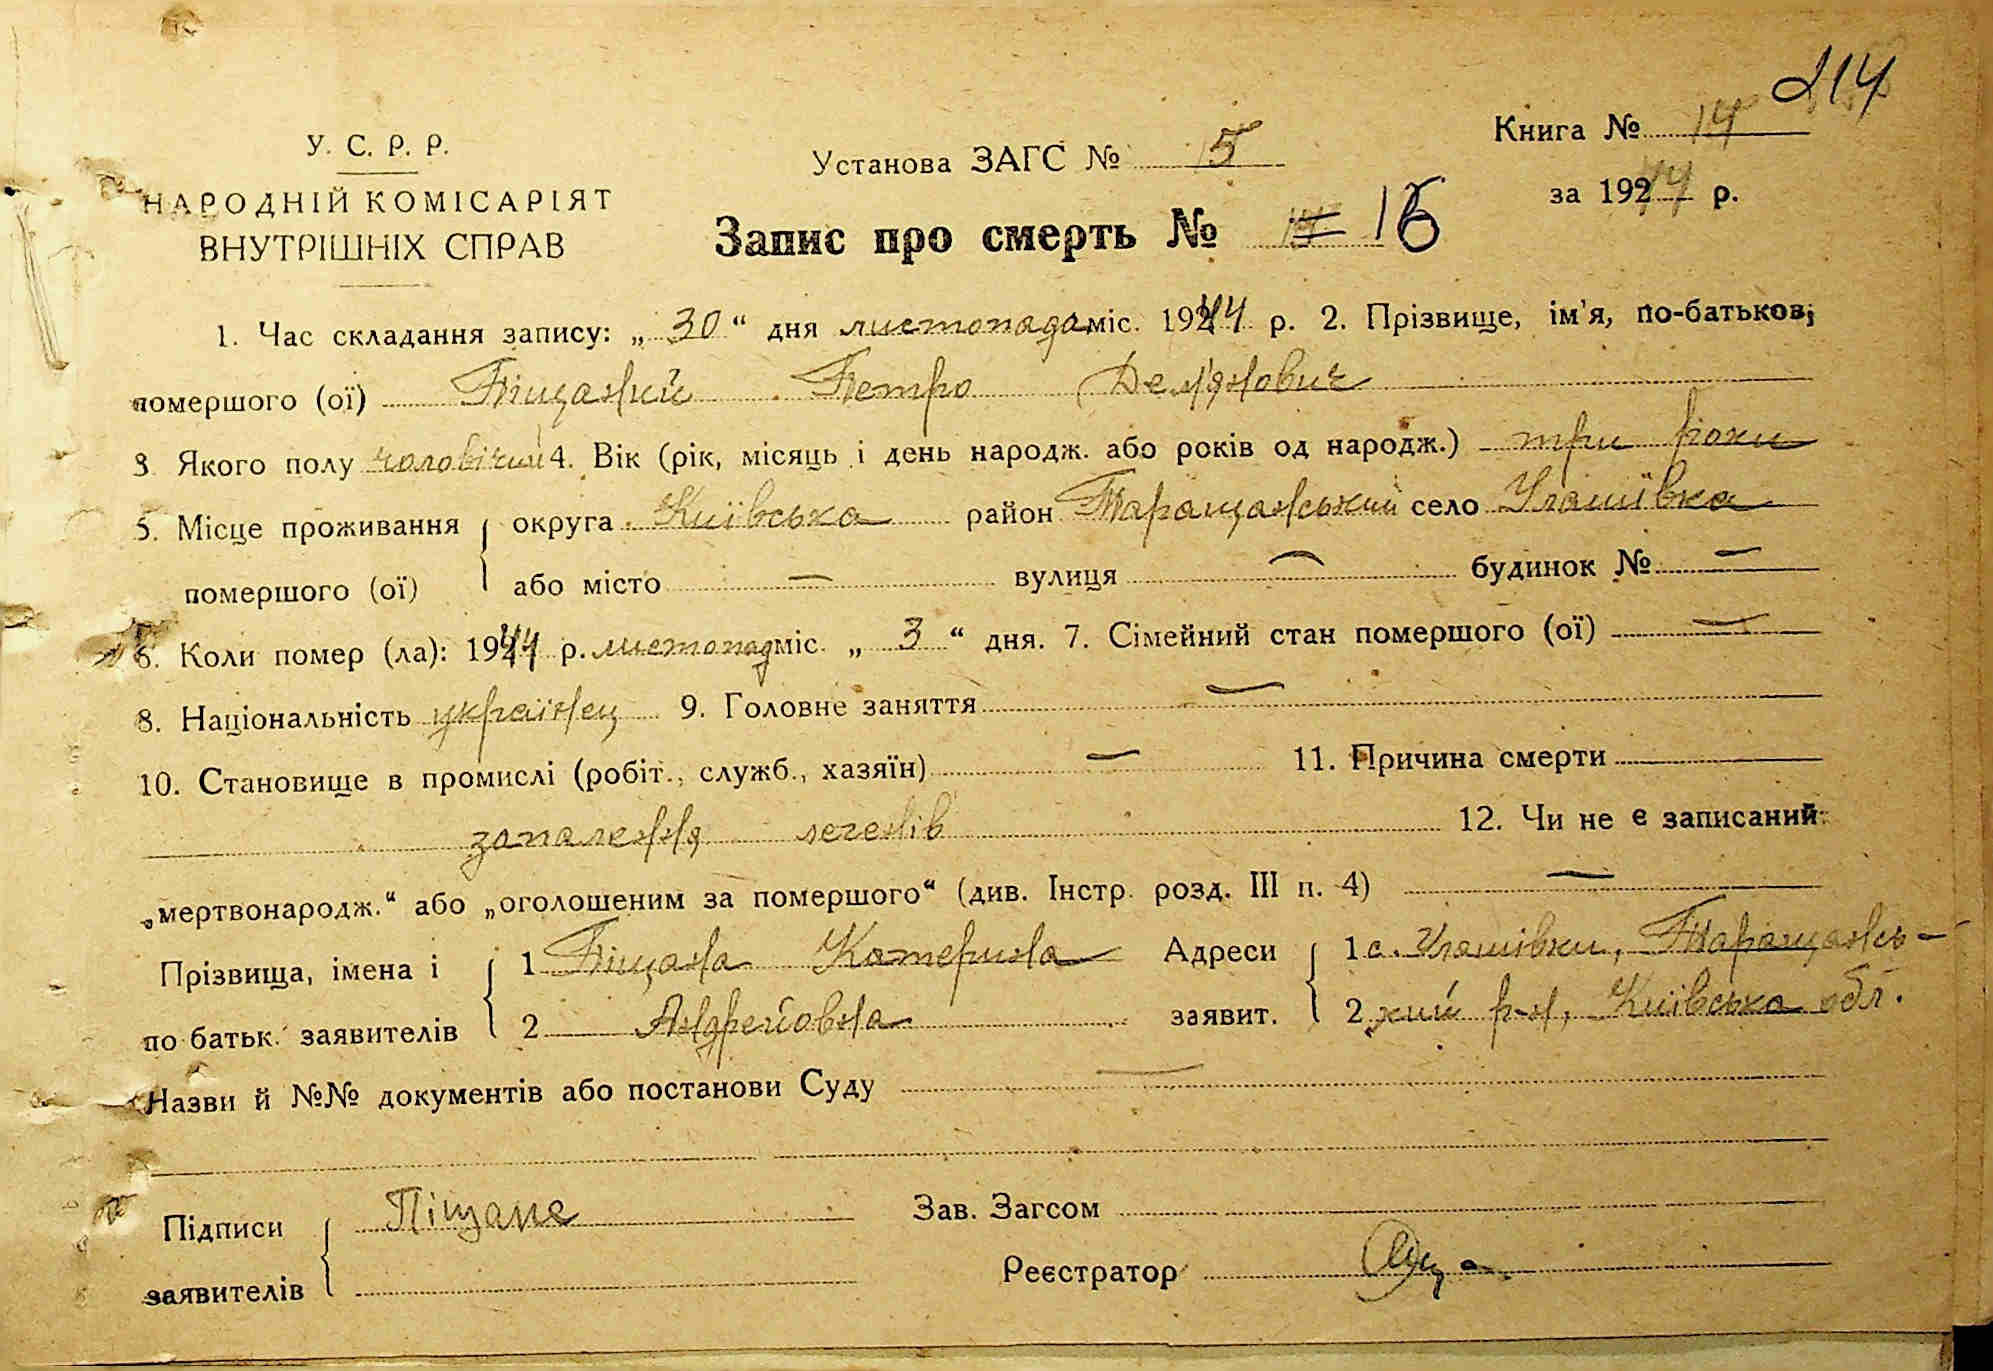 214
Книга № 14
У. С. Р. Р.
Установа ЗАГС № 5
за 1944 р.
НАРОДНІЙ КОМІСАРІЯТ
ВНУТРІШНІХ СПРАВ
Запис про смерть № 16
1. Час складання запису: „ 30 “ дня листопада міс. 1944 р. 2. Прізвище, ім'я, по-батькові
помершого (ої) Піщаний Петро Дем'янович
3 Якого полу чоловічий 4. Вік (рік, місяць і день народж. або років од народж.) три роки
5. Місце проживання округа Київська район Таращанський село Улашівка
помершого (ої) або місто — вулиця — будинок № —
6. Коли помер (ла): 1944 р. листопад міс. „ 3 “ дня. 7. Сімейний стан помершого (ої) —
8. Національність українец 9. Головне заняття —
10. Становище в промислі (робіт., служб., хазяїн) — 11. Причина смерти
запалення легенів 12. Чи не є записаний
„мертвонародж.“ або „оголошеним за помершого“ (див. Інстр. розд. III п. 4) —
Прізвища, імена і 1 Піщана Катерина Адреси 1 с. Улашівки, Таращансь-
по батьк. заявителів 2 Андрейовна заявит. 2 кий р-н, Київська обл.
Назви й №№ документів або постанови Суду —
Підписи Піщане Зав. Загсом
заявителів Реєстратор